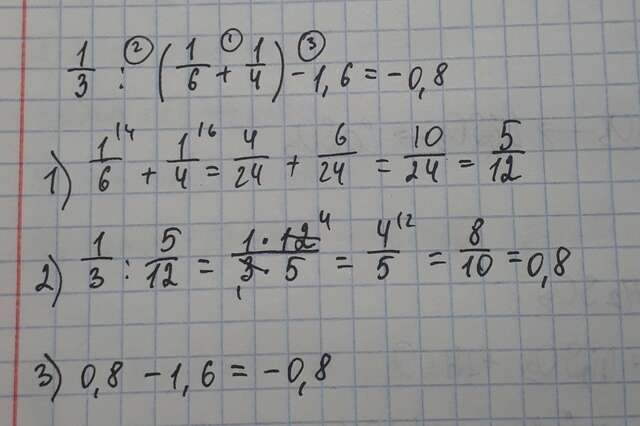 1/3 : (1/6 + 1/4) - 1,6 = -0,8
② ① ③
1) 1/6 \4 + 1/4 \6 = 4/24 + 6/24 = 10/24 = 5/12
2) 1/3 : 5/12 = 1·12 4/3·5 1 = 4/5 \2 = 8/10 = 0,8
3) 0,8 - 1,6 = -0,8